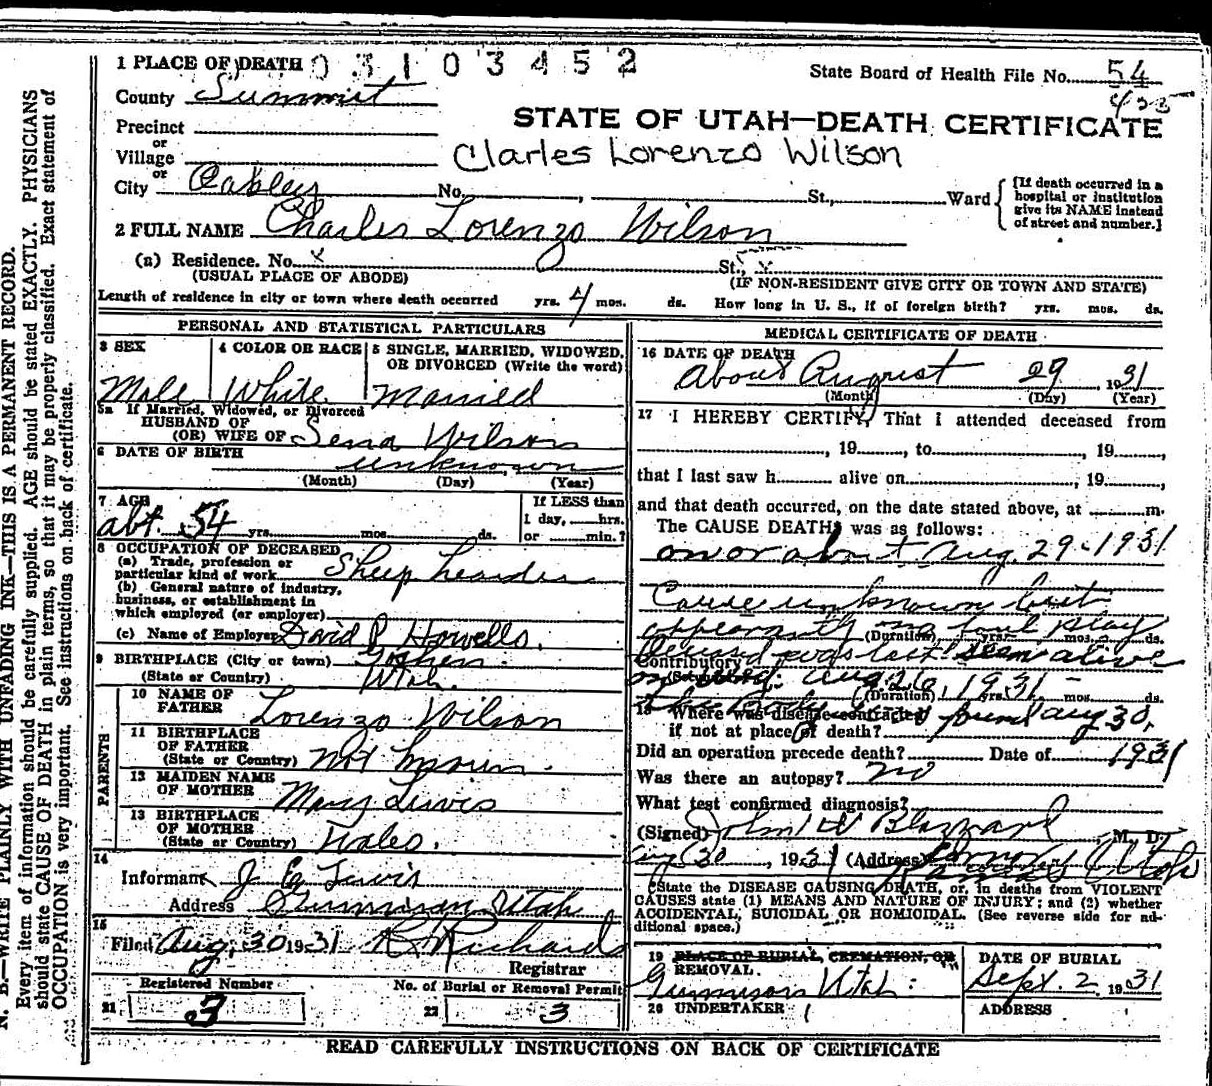 1 PLACE OF DEATH 03103452
State Board of Health File No. 54
425
County Summit
STATE OF UTAH—DEATH CERTIFICATE
Precinct
or
Village
Clarles Lorenzo Wilson
or
City Oakley No. , St., Ward
[If death occurred in a hospital or institution give its NAME instead of street and number.]
2 FULL NAME Charles Lorenzo Wilson
(a) Residence. No. x St., x
(USUAL PLACE OF ABODE) (IF NON-RESIDENT GIVE CITY OR TOWN AND STATE)
Length of residence in city or town where death occurred yrs. 4 mos. ds. How long in U. S., if of foreign birth? yrs. mos. ds.
PERSONAL AND STATISTICAL PARTICULARS
3 SEX
Male
4 COLOR OR RACE
White
5 SINGLE, MARRIED, WIDOWED, OR DIVORCED (Write the word)
Married
5a If Married, Widowed, or Divorced
HUSBAND OF
(OR) WIFE OF Sena Wilson
6 DATE OF BIRTH
unknown
(Month) (Day) (Year)
7 AGE
abt. 54 yrs. mos. ds.
If LESS than
1 day, hrs.
or min.?
8 OCCUPATION OF DECEASED
(a) Trade, profession or
particular kind of work Sheep hearder
(b) General nature of industry,
business, or establishment in
which employed (or employer)
(c) Name of Employer David P Howells.
9 BIRTHPLACE (City or town) Goshen
(State or Country) Utah.
PARENTS
10 NAME OF
FATHER Lorenzo Wilson
11 BIRTHPLACE
OF FATHER
(State or Country) Not known.
12 MAIDEN NAME
OF MOTHER Mary Lewis
13 BIRTHPLACE
OF MOTHER
(State or Country) Wales.
14
Informant J E Lewis
Address Gunnison Utah
15
Filed Aug. 30 1931 Richards
Registrar
Registered Number
No. of Burial or Removal Permit
21 3
22 3
MEDICAL CERTIFICATE OF DEATH
16 DATE OF DEATH
About August 29, 1931
(Month) (Day) (Year)
17 I HEREBY CERTIFY, That I attended deceased from
, 19, to , 19,
that I last saw h alive on , 19,
and that death occurred, on the date stated above, at m.
The CAUSE DEATH, was as follows:
on or about Aug. 29-1931
Cause unknown but
apparently no foul play
(Duration) yrs. mos. ds.
Deceased was last seen alive
Contributory
on Aug. 26, 1931-
(Duration) yrs. mos. ds.
the Body found aug 30,
18 Where was disease contracted
if not at place of death?
1931
Did an operation precede death? Date of
Was there an autopsy? no
What test confirmed diagnosis?
(Signed) John W Blazzard, M. D.
Aug 30, 1931 (Address) Kamas Utah
(State the DISEASE CAUSING DEATH, or, in deaths from VIOLENT
CAUSES state (1) MEANS AND NATURE OF INJURY; and (2) whether
ACCIDENTAL, SUICIDAL OR HOMICIDAL. (See reverse side for additional space.)
19 PLACE OF BURIAL, CREMATION, OR
REMOVAL.
Gunnison Utah.
DATE OF BURIAL
Sept. 2 1931
20 UNDERTAKER
ADDRESS
READ CAREFULLY INSTRUCTIONS ON BACK OF CERTIFICATE
N. B.—WRITE PLAINLY WITH UNFADING INK—THIS IS A PERMANENT RECORD.
Every item of information should be carefully supplied. AGE should be stated EXACTLY. PHYSICIANS
should state CAUSE OF DEATH in plain terms, so that it may be properly classified. Exact statement of
OCCUPATION is very important. See instructions on back of certificate.